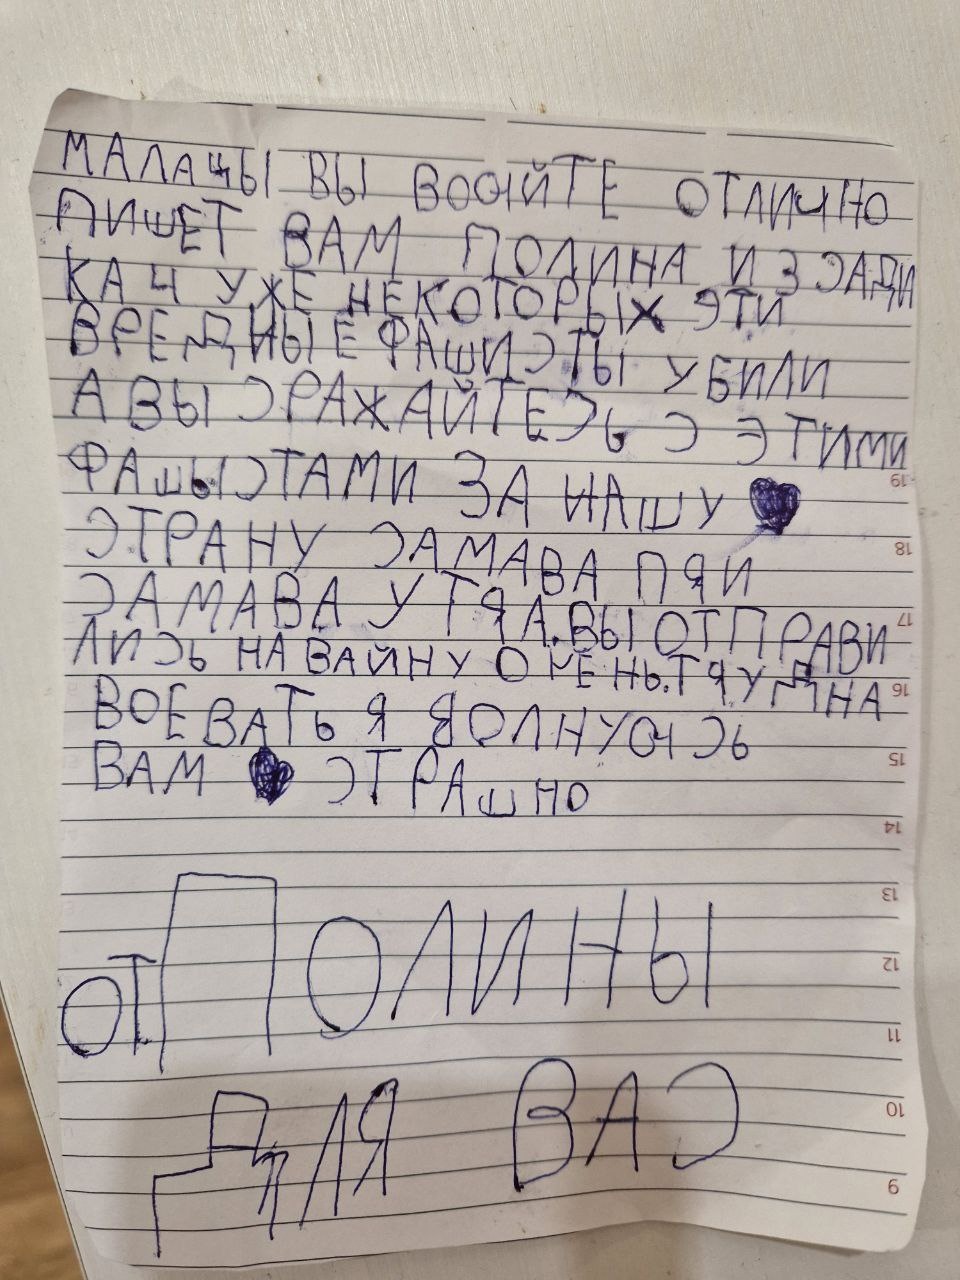 МАЛАЦЫ ВЫ ВОЮЙТЕ ОТЛИЧНО
ПИШЕТ ВАМ ПОЛИНА ИЗ САДИ
КА Ч УЖЕ НЕКОТОРЫХ ЭТИ
ВРЕДНЫЕ ФАШИСТЫ УБИЛИ
А ВЫ СРАЖАЙТЕСЬ С ЭТИМИ
ФАШЫСТАМИ ЗА НАШУ
СТРАНУ САМАВА ПЯИ
САМАВА УТЯА. ВЫ ОТПРАВИ
ЛИСЬ НА ВАЙНУ ОЧЕНЬ. ТЯУДНА
ВОЕВАТЬ Я ВОЛНУЮЧСЬ
ВАМ СТРАШНО
ОТ ПОЛИНЫ
ДЛЯ ВАС
19
18
17
16
15
14
13
12
11
10
9